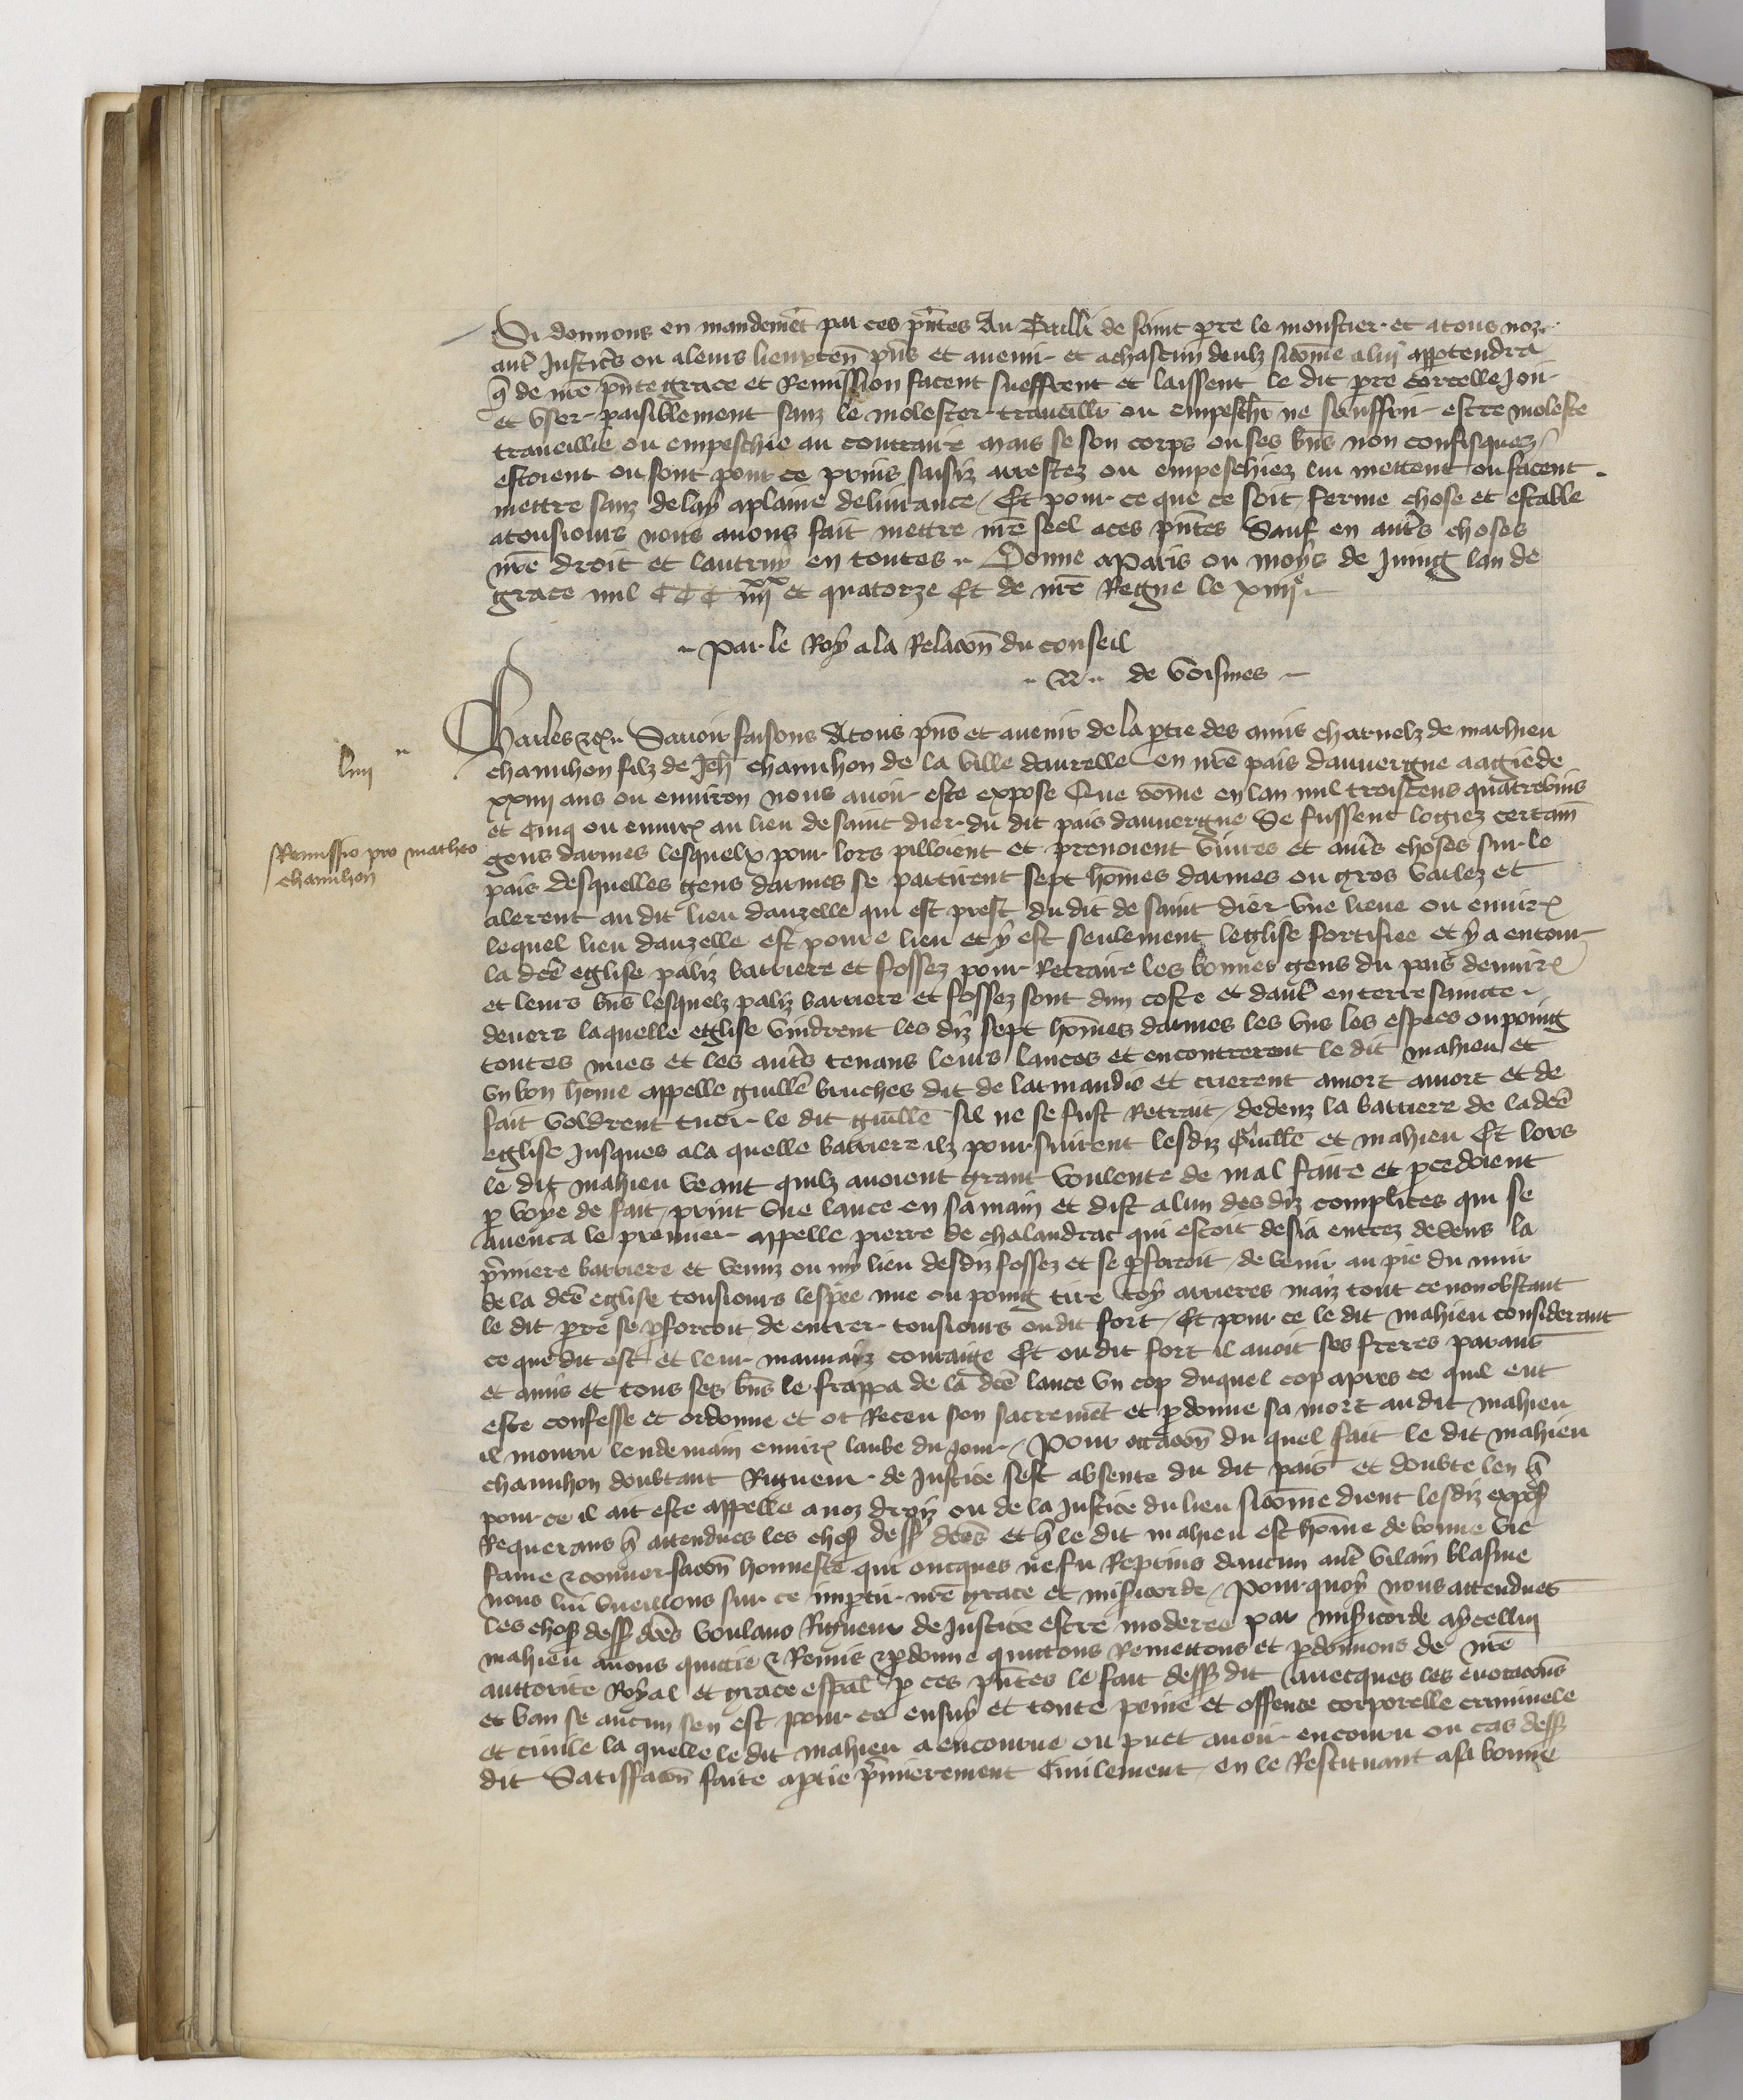 Si donnons en mandemẽt par ces pñtes Au Bailli de saint pre le monstier et atous noz
autr̃ Justic̃s ou aleurs lieuxten̄ pñs et avenir et achascun deulz sicõme alui appartendra
q̃ de nr̃e pñte grace et Remission facent sueffrent et laissent le dit pre Jorcelle Joir
et user paisiblement sanz le molester travaillir ou empeschr̃ ne souffrir estre moleste
travaillie ou empeschie au contraire mais se son corps ou ses bñs non confisquez
estoient ou sont pour ce prins saisiz arrestez ou empeschiez lui mettent ou facent
mettre sanz delay aplaine delivrance Et pour ce que ce soit ferme chose et estable
atousiours nous avons fait mettre nr̃e seel aces pñtes Sauf en autr̃s choses
nr̃e droit et lautruy en toutes Donne aParis ou moys de Juing lan de
grace mil CCC iiii xx et quatorze Et de nr̃e Regne le xiiiie
Par le Roy ala Relacõn du conseil
N de Voisines
liiii
Charles etc̃ Savoir faisons Atous pñs et avenir de la ptie des amis charnelz de mathieu
chauchon filz de Jeh̃ chauchon de la ville dauzelle en nr̃e pais dauvergne aagie de
xxiiii ans ou environ nous avoir este expose Que cõme en lan mil troiscens quatrevins
et Cinq ou envirõ au lieu de saint dier du dit pais dauvergne Se fussent logiez certain̄
Remissio pro matheo
chauchon
gens darmes lesquelx pour lors pilloient et prenoient vivres et autr̃s choses sur le
pais desquelles gens darmes se partirent sept hõmes darmes ou gros varlez et
alerent au dit lieu dauzelle qui est prest du dit de saint dier une lieue ou envirõ
lequel lieu dauzelle est povre lieu et y est seulement leglise fortifiee et y a entour
la dcẽ eglise paliz barriere et fossez pour Retraire les bonnes gens du pais denvirõ
et leurs bñs lesquelz paliz barriere et fossez sont dun coste et dautr̃ en terre saincte
devers laquelle eglise vindrent les diz sept hõmes darmes les uns les espees ou poing
toutes nues et les autr̃s tenans leurs lances et encontrerent le dit mahieu et
un bon hõme appelle guillẽ bruches dit de larmandie et crierent amort amort et de
fait voldrent tuer le dit guillẽ sil ne se fust Retrait dedenz la barriere de ladcẽ
eglise Jusques ala quelle barriere ilz poursuirent lesdiz Guillẽ et mahieu Et lors
le dit mahieu veant quilz avoient grant voulente de mal faire et pcedoient
p voye de fait print une lance en sa main et dist alun desdiz complices qui se
avenca le premier appelle pierre de chalandrac qui estoit desia entrez dedens la
pr̃miere barriere et venuz ou my lieu desdiz fossez et se pforcoit de venir au pie du mur
de la dcẽ eglise tousiours lespee nue ou poing tire toy arrieres maiz tout ce nonobstant
le dit pre se pforcoit de entrer tousiours oudit fort Et pour ce le dit mahieu considerant
ce que dit est et leur mauvaiz couraige Et oudit fort il avoit ses freres parans
et amis et tous ses bñs le frappa de la dcẽ lance un cop duquel cop apres ce quil eut
este confesse et ordonne et ot Receu son sacremẽt et pdonne sa mort audit mahieu
il mouru lendemain envirõ laube du jour Pour occacõn du quel fait le dit mahieu
chauchon doubtant Rigueur de Justice sest absente du dit pais et doubte len q̃
pour ce il ait este appelle a noz droiz ou de la Justice du lieu sicõme dient lesdiz expos̃
Requerans q̃ attendues les chos̃ dess̃ dcẽs et q̃ le dit mahieu est hõme de bonne vie
fame et conversacõn honneste qui oncques ne fu Reprins daucun autr̃ vilain blasme
nous lui vueillons sur ce impartir nr̃e grace et mis̃icorde Pourquoy nous attendues
les chos̃ dess̃ dcẽs voulans Rigueur de Justice estre moderee par mis̃icorde aycellui
mahieu avons quictie et Remis et pdonne quittons Remettons et pdonnons de nr̃e
auttorite Royal et grace esp̃al p ces pñtes le fait dess̃ dit avecques les evocacõns
et ban se aucun sen est pour ce ensuy et toute peine et offense corporelle criminele
et civile la quelle le dit mahieu a encourue ou puet avoir encouru ou cas dess̃
dit Satisfacõn faite aptie pr̃mierement Civilement en le Restituant asa bonne